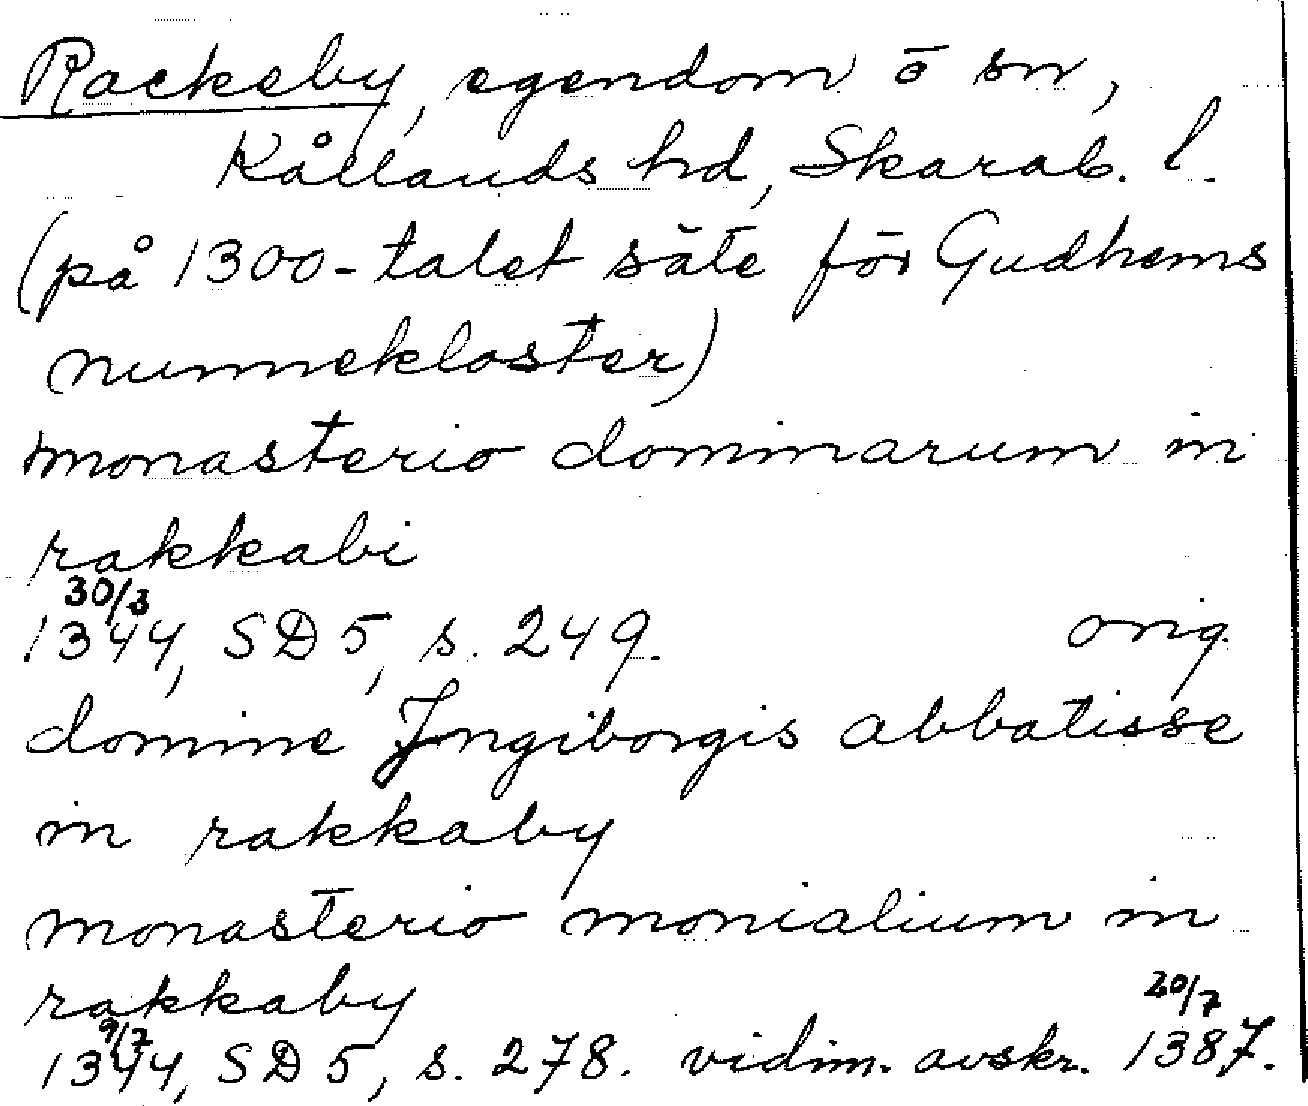 Rackeby, egendom o sn,
Kållands hd, Skarab. l.
(på 1300-talet säte för Gudhems
nunnekloster)
monasterio dominarum in
rakkabi
30/3
1344, SD 5, s. 249. orig.
domine Jngiborgis abbatisse
in rakkaby
monasterio monialium in
rakkaby
9/7 20/7
1344, SD 5, s. 278. vidim. avskr. 1387.